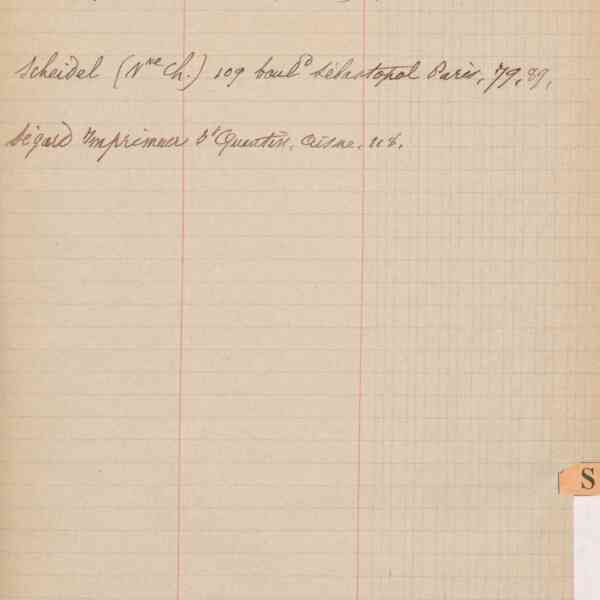 Scheidel (Vve Ch.) 109 boul^d Sébastopol Paris, 79, 89,
Ségard Imprimeur St Quentin, Aisne, 118.
S